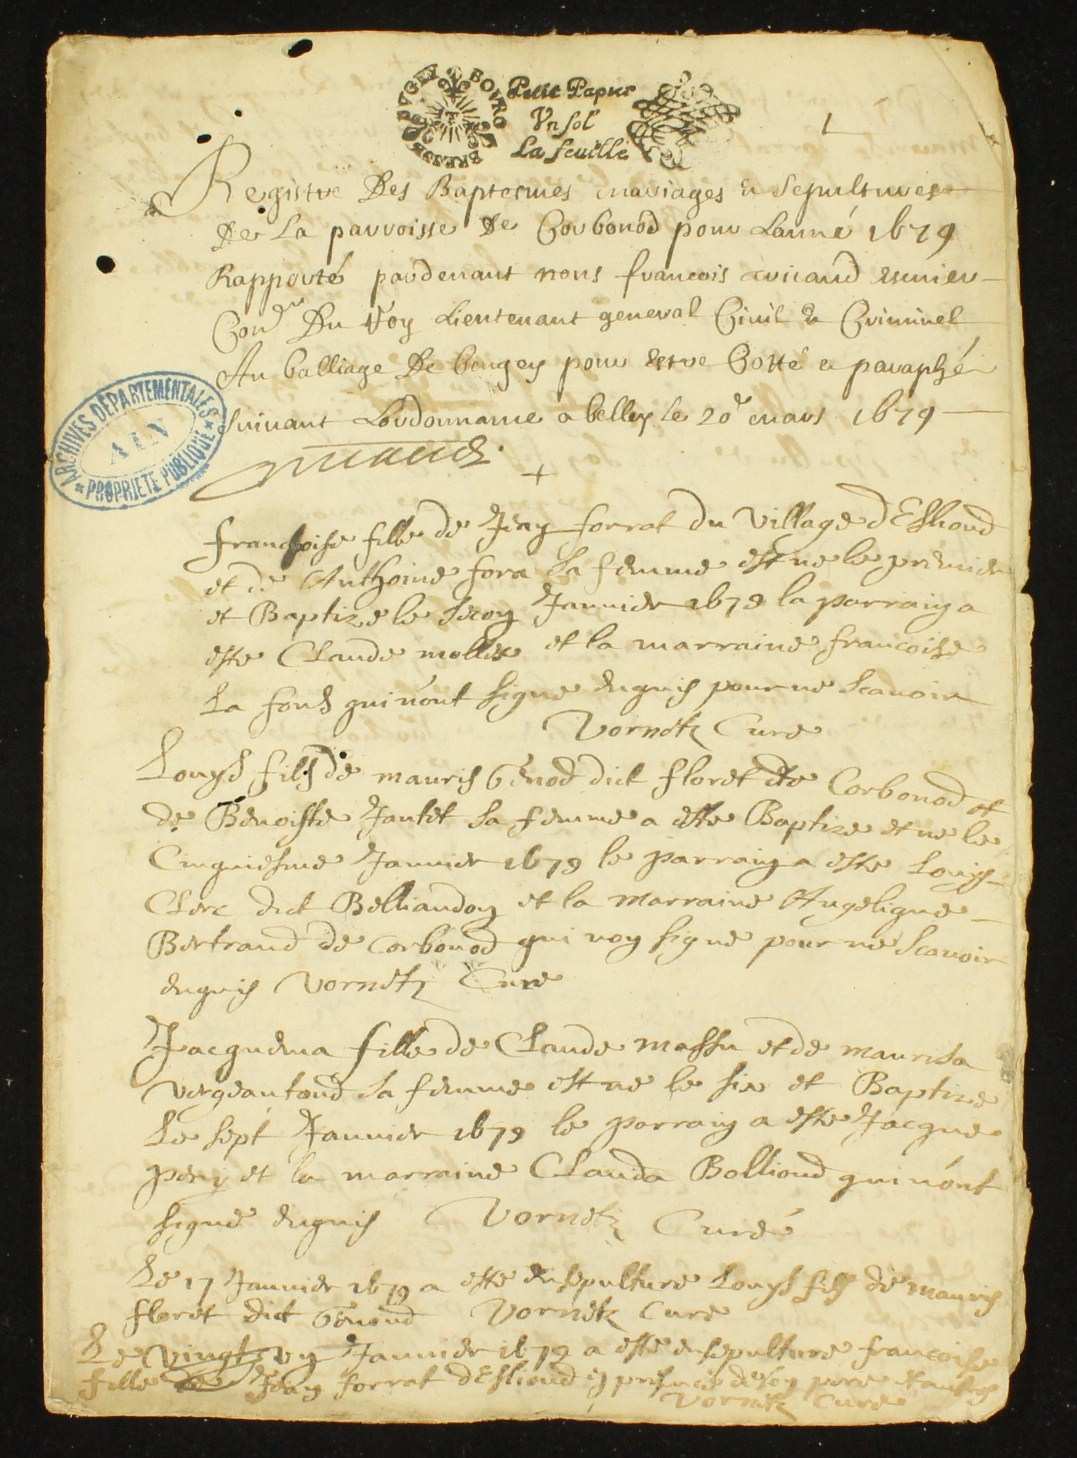 BRESSE BUGEY BOURG
Petit Papier
Un sol
La feuille
1
Registre Des Baptesmes mariages & sepultures
De La parroisse De Corbonod pour Lanné 1679
Rapporté pardevant nous francois escuier
Con.er Du Roy Lieutenant general Civil & Criminel
Au balliage De beugey pour estre Cotté & paraphé
suivant Lordonnance a belley le 20e mars 1679
ARCHIVES DÉPARTEMENTALES
AIN
PROPRIETE PUBLIQUE
franchoise fille de Jean forrat du village d'Eslioud
et de Anthoine fora sa femme est ne le premier
et Baptize le secon Janvier 1679 la parrain a
este Claude mollex et la marraine francoise
La fond qui n'ont signe enquis pour ne scavoir
Vornetz Cure
Louys fils de mauris Genod dict floret de Corbonod et
de Benoiste Jantet sa femme a este Baptize et ne le
Cinquiesme Janvier 1679 le parrain a este Louys
Clerc dict Belliandon et la marraine Angelique
Bertrand de Corbonod qui non signe pour ne scavoir
enquis Vornetz Cure
Jacquema fille de Claude massu et de maurisa
sa femme est ne le six et Baptize
Le sept Janvier 1679 le parrain a este Jacque
pery et la marraine Clauda Bollioud qui n'ont
signe enquis Vornetz Curé
Le 17 Janvier 1679 a este ensepulture Louys fils de mauris
floret dict Genoud Vornetz Cure
Le vingt un Janvier 1679 a este ensepulture francoise
fille de Jean forrat d'Eslioud en presence de son pere
Vornetz Cure